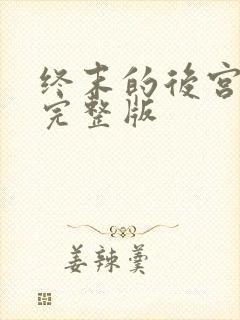 终末的後宫
完整版
姜辣羹